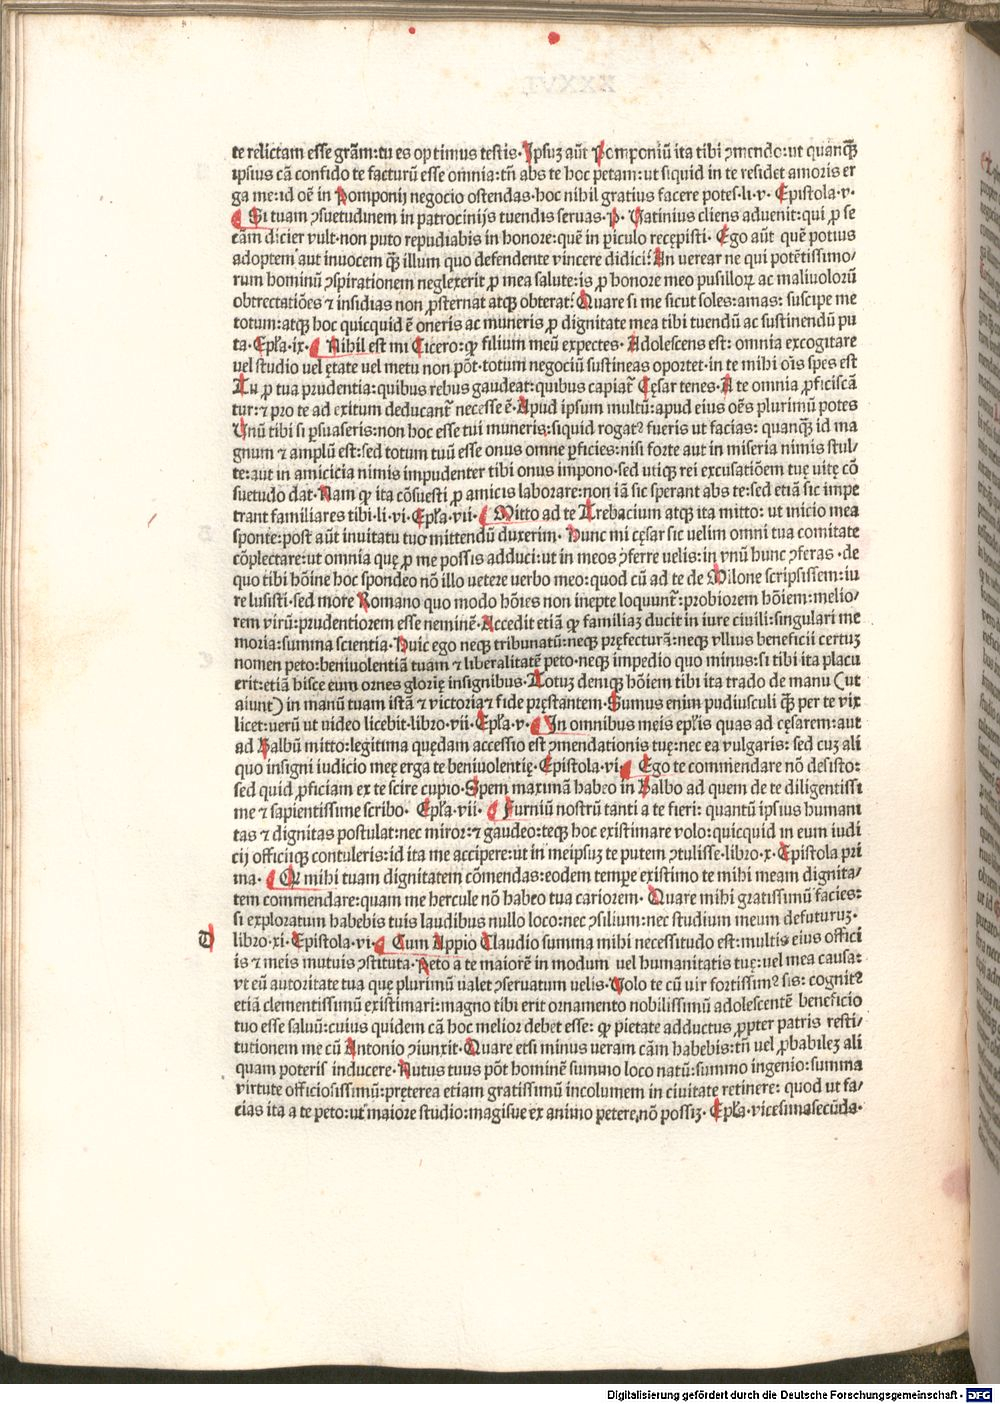 te relictam esse grãm:tu es optimus testis·Ipsuꝫ aũt Pomponiũ ita tibi ꝯmendo:ut quanq̃ꝫ
ipsius cã confido te facturũ esse omnia:tñ abs te hoc petam:ut siquid in te residet amoris er
ga me:id oẽ in Pomponij negocio ostendas·hoc nihil gratius facere potes·li·v· Epistola·v·
¶ Si tuam ꝯsuetudinem in patrocinijs tuendis seruas·P· Vatinius cliens aduenit:qui ꝓ se
cãm dicier vult·non puto repudiabis in honore:quẽ in ꝑiculo recępisti· Ego aũt quẽ potius
adoptem aut inuocem q̃ꝫ illum quo defendente vincere didici? An uerear ne qui potẽtissimo/
rum hominũ ꝯspirationem neglexerit ꝓ mea salute:is ꝓ honore meo pusilloꝝ ac maliuolorũ
obtrectatiões ⁊ insidias non ꝓsternat atqꝫ obterat? Quare si me sicut soles:amas: suscipe me
totum:atqꝫ hoc quicquid ẽ oneris ac muneris ꝓ dignitate mea tibi tuendũ ac sustinendũ pu
ta·Epła·ix· ¶ Nihil est mi Cicero:ꝙ filium meũ expectes· Adolescens est: omnia excogitare
uel studio uel ętate uel metu non põt·totum negociũ sustineas oportet·in te mihi oĩs spes est
Tu ꝓ tua prudentia:quibus rebus gaudeat:quibus capiat᷑ Cęsar tenes· A te omnia ꝓficiscã
tur:⁊ pro te ad exitum deducant᷑ necesse ẽ· Apud ipsum multũ:apud eius oẽs plurimũ potes
Vnũ tibi si ꝑsuaseris:non hoc esse tui muneris:siquid rogatꝰ fueris ut facias: quanq̃ꝫ id ma
gnum ⁊ amplũ est:sed totum tuũ esse onus omne ꝑficies:nisi forte aut in miseria nimis stul/
te:aut in amicicia nimis impudenter tibi onus impono·sed utiqꝫ rei excusatiõem tuę uitę cõ
suetudo dat·Nam ꝙ ita cõsuesti ꝓ amicis laborare:non iã sic sperant abs te:sed etiã sic impe
trant familiares tibi·li·vi·Epła·vii· ¶ Mitto ad te Trebacium atqꝫ ita mitto: ut inicio mea
sponte:post aũt inuitatu tuo mittendũ duxerim· Hunc mi cęsar sic uelim omni tua comitate
cõplectare:ut omnia quę ꝓ me possis adduci:ut in meos ꝯferre uelis:in vnũ hunc ꝯferas ·de
quo tibi hõine hoc spondeo nõ illo uetere verbo meo:quod cũ ad te de Milone scripsissem:iu
re lusisti·sed more Romano quo modo hõies non inepte loquunt᷑:probiorem hõiem:melio/
rem virũ:prudentiorem esse neminẽ·Accedit etiã ꝙ familiaꝫ ducit in iure ciuili:singulari me
moria:summa scientia·Huic ego neqꝫ tribunatũ:neqꝫ pręfecturã:neqꝫ vllius beneficii certuꝫ
nomen peto:beniuolentiã tuam ⁊ liberalitatẽ peto·neqꝫ impedio quo minus:si tibi ita placu
erit:etiã hisce eum ornes glorię insignibus·Totuꝫ deniqꝫ hõiem tibi ita trado de manu (ut
aiunt) in manũ tuam istã ⁊ victoria ⁊ fide pręstantem·Sumus enim pudiusculi q̃ꝫ per te vix
licet:uerũ ut uideo licebit·libro·vii·Epła·v· ¶ In omnibus meis epłis quas ad cęsarem:aut
ad Balbũ mitto:legitima quędam accessio est ꝯmendationis tuę:nec ea vulgaris: sed cuꝫ ali
quo insigni iudicio meę erga te beniuolentię·Epistola·vi· ¶ Ego te commendare nõ desisto:
sed quid ꝓficiam ex te scire cupio·Spem maximã habeo in Balbo ad quem de te diligentissi
me ⁊ sapientissime scribo· Epła·vii· ¶ Furniũ nostrũ tanti a te fieri: quantũ ipsius humani
tas ⁊ dignitas postulat:nec miror:⁊ gaudeo:teqꝫ hoc existimare volo:quicquid in eum iudi
cij officiiqꝫ contuleris:id ita me accipere:ut in meipsuꝫ te putem ꝯtulisse·libro·x·Epistola pri
ma· ¶ Qr mihi tuam dignitatem cõmendas:eodem tempꝛe existimo te mihi meam dignita/
tem commendare:quam me hercule nõ habeo tua cariorem· Quare mihi gratissimũ facies:
si exploratum habebis tuis laudibus nullo loco:nec ꝯsilium:nec studium meum defuturuꝫ·
D libro·xi·Epistola·vi· ¶ Cum Appio Claudio summa mihi necessitudo est:multis eius offici
is ⁊ meis mutuis ꝯstituta·Peto a te maiorẽ in modum uel humanitatis tuę:uel mea causa:
vt eũ autoritate tua quę plurimũ ualet ꝯseruatum uelis·Volo te cũ uir fortissimꝰ sis: cognitꝰ
etiã clementissimũ existimari:magno tibi erit ornamento nobilissimũ adolescentẽ beneficio
tuo esse saluũ:cuius quidem cã hoc melioꝰ debet esse: ꝙ pietate adductus ꝓpter patris resti/
tutionem me cũ Antonio ꝯiunxit·Quare etsi minus ueram cãm habebis:tñ uel ꝓbabileꝫ ali
quam poteris inducere·Nutus tuus põt hominẽ summo loco natũ:summo ingenio:summa
virtute officiosissimũ:pręterea etiam gratissimũ incolumem in ciuitate retinere: quod ut fa/
cias ita a te peto:ut maiore studio:magisue ex animo petere,nõ possiꝫ· Epła·vicesimasecũda·
Digitalisierung gefördert durch die Deutsche Forschungsgemeinschaft - DFG